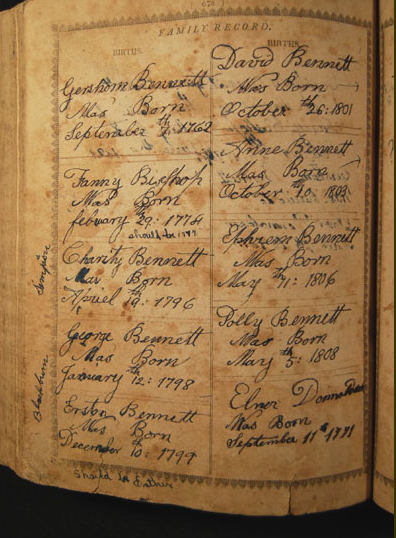 678
FAMILY RECORD.
BIRTHS.
Gershom Bennett
Was Born
September th 7, 1762
Fanny Bishop
Was Born
february th 29: 1774
should be 1777
Charity Bennett
Was Born
Apriel th 19: 1796
George Bennett
Was Born
January th 12: 1798
Erston Bennett
Was Born
December th 10: 1799
Should be Esther
BIRTHS.
David Bennett
Was Born
October th 26: 1801
Anne Bennett
Was Born
October th 10: 1803
Ephriem Bennett
Was Born
May th 11: 1806
Polly Bennett
Was Born
May th 5: 1808
Elner
Was Born
September 11